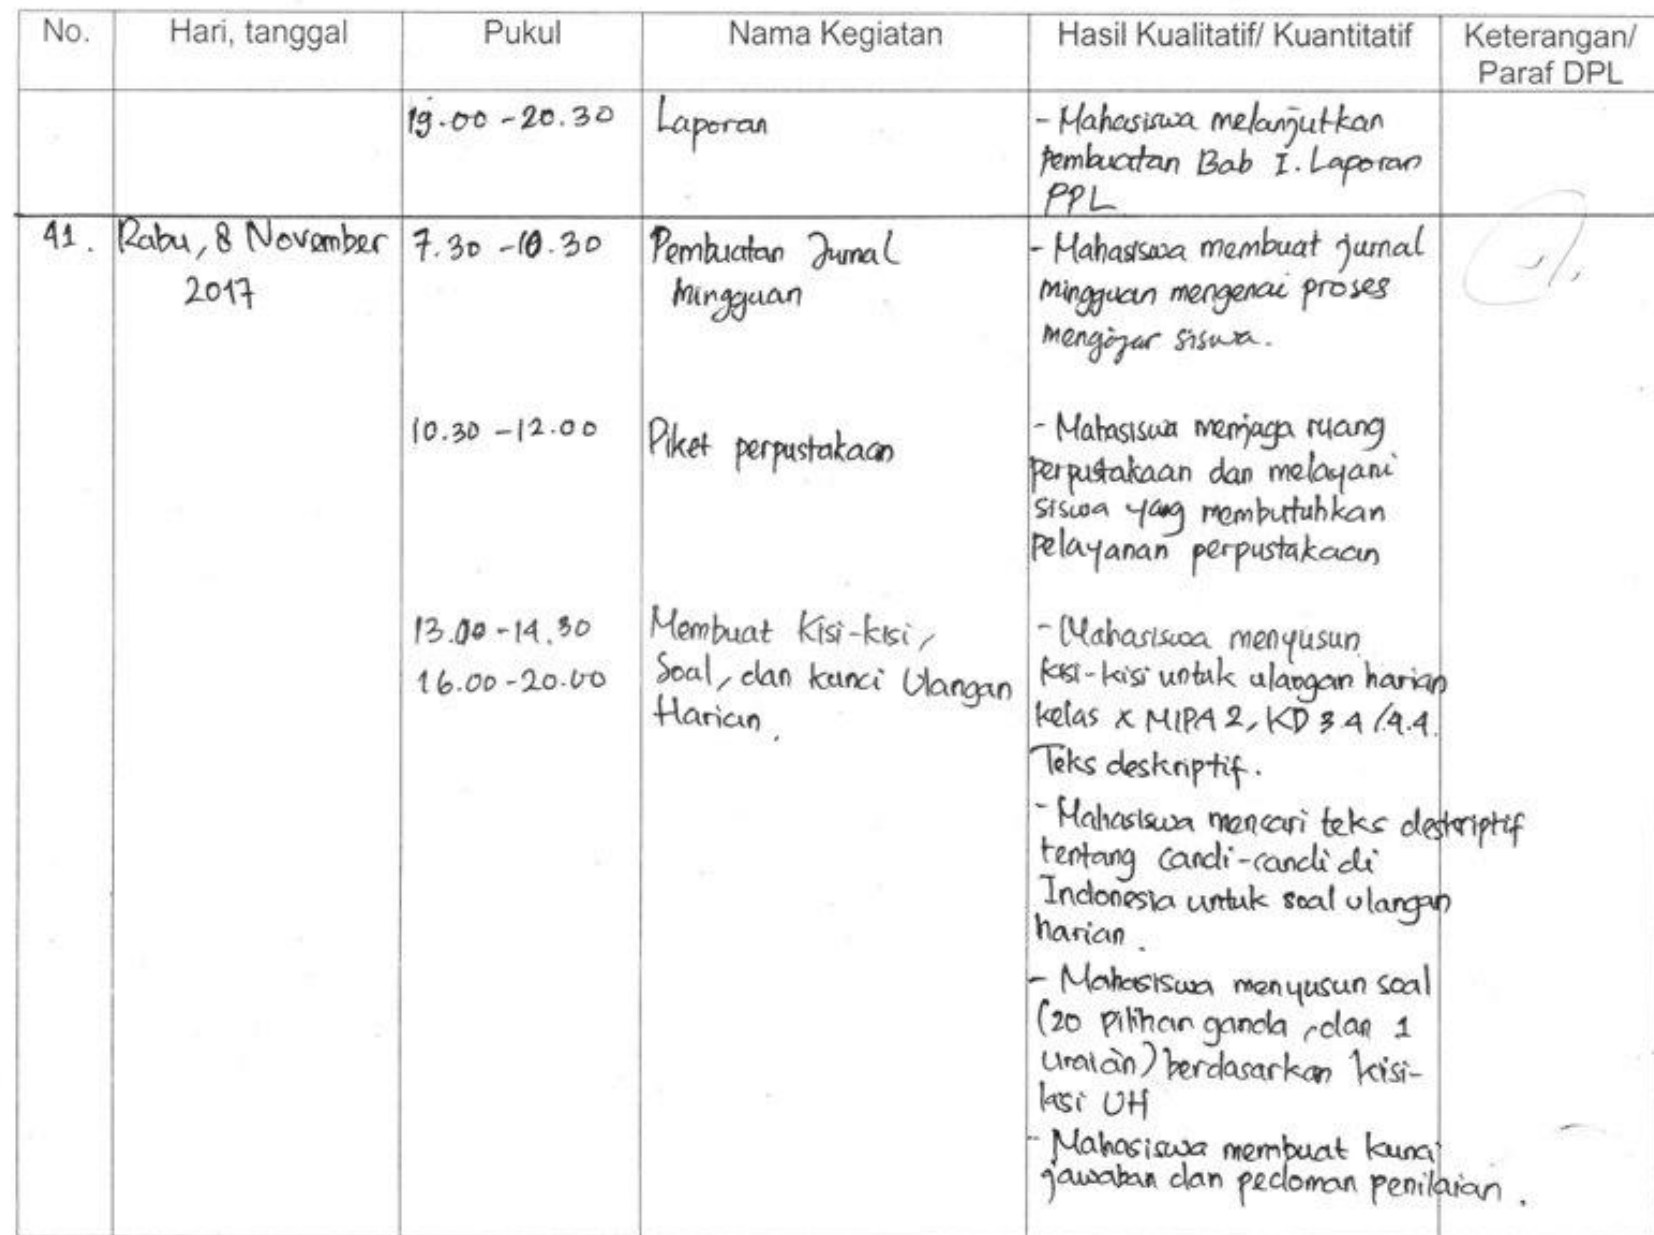 No.
Hari, tanggal
Pukul
Nama Kegiatan
Hasil Kualitatif/ Kuantitatif
Keterangan/
Paraf DPL
19.00 - 20.30
Laporan
- Mahasiswa melanjutkan
pembuatan Bab I. Laporan
PPL
41.
Rabu, 8 November
2017
7.30 - 10.30
Pembuatan Jurnal
Mingguan
- Mahasiswa membuat jurnal
mingguan mengenai proses
mengajar siswa.
10.30 - 12.00
Piket perpustakaan
- Mahasiswa menjaga ruang
perpustakaan dan melayani
siswa yang membutuhkan
pelayanan perpustakaan
13.00 - 14.30
16.00 - 20.00
Membuat Kisi-kisi,
Soal, dan kunci Ulangan
Harian.
- Mahasiswa menyusun
kisi-kisi untuk ulangan harian
kelas X MIPA 2, KD 3.4 / 4.4.
Teks deskriptif.
- Mahasiswa mencari teks deskriptif
tentang candi-candi di
Indonesia untuk soal ulangan
harian.
- Mahasiswa menyusun soal
(20 pilihan ganda, dan 1
uraian) berdasarkan kisi-
kisi UH
- Mahasiswa membuat kunci
jawaban dan pedoman penilaian.